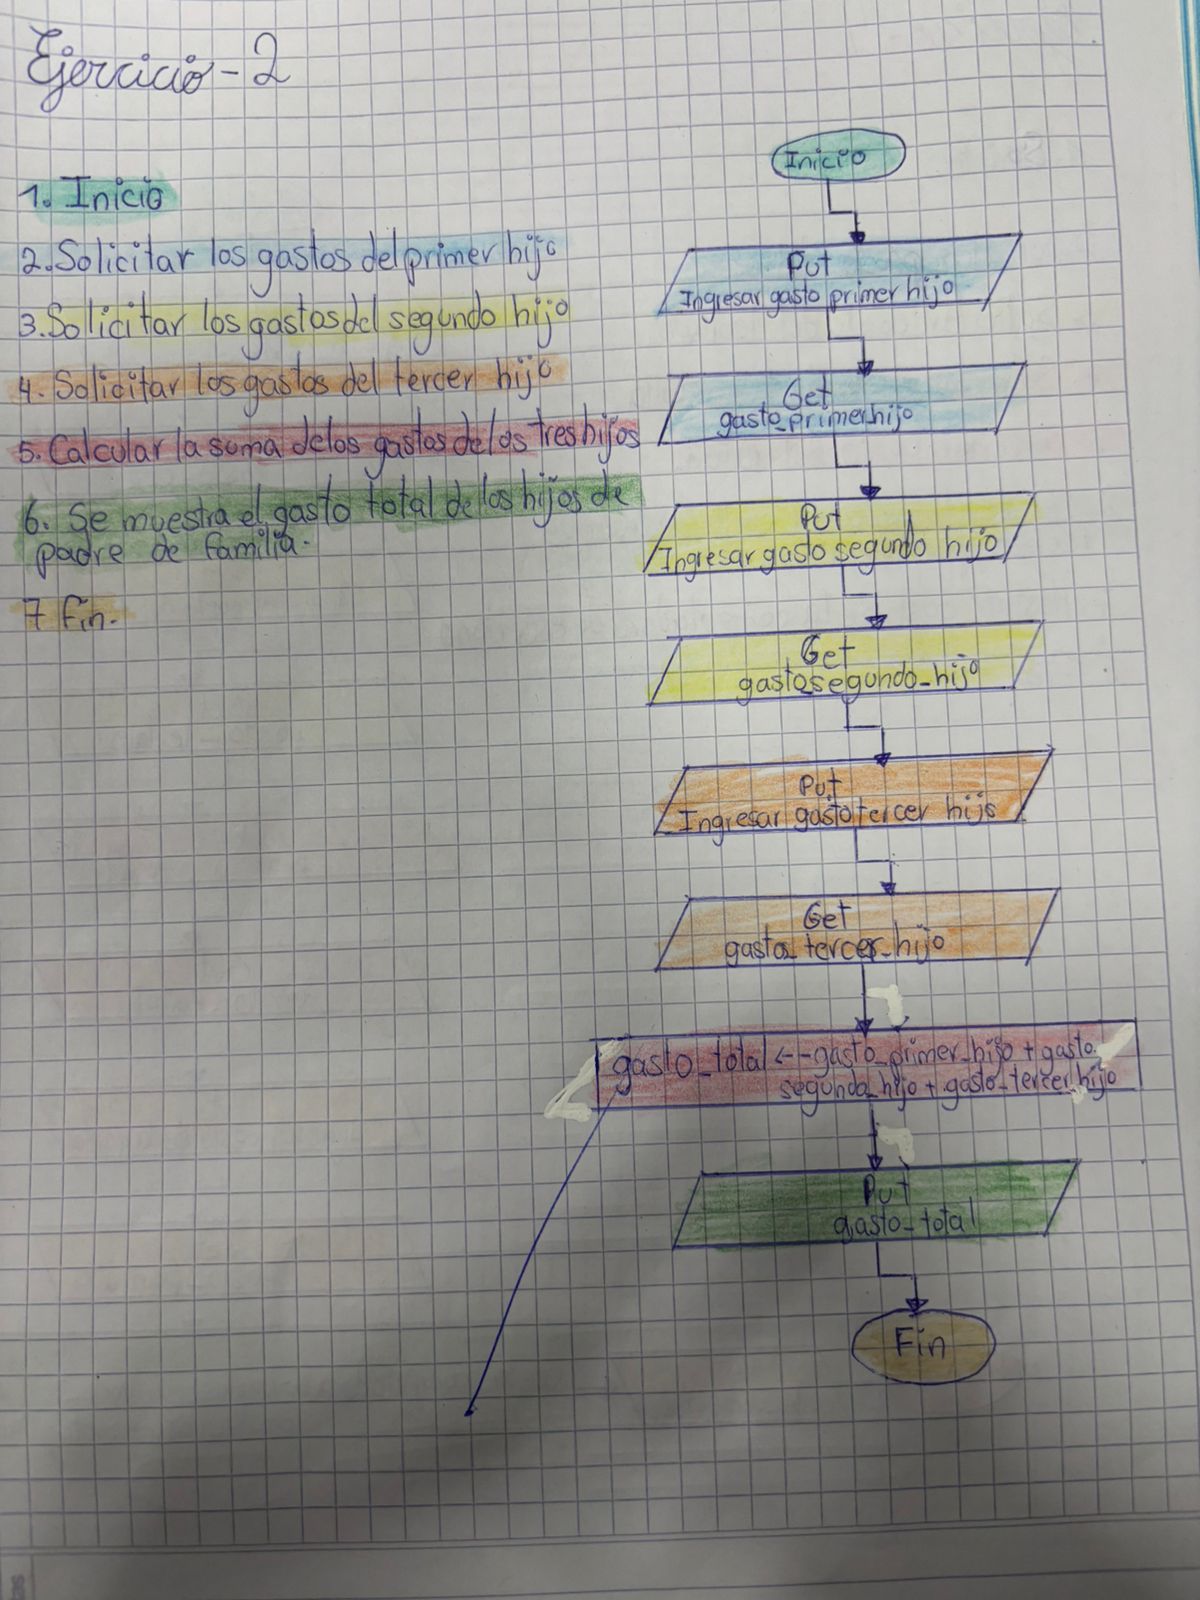 Ejercicio-2
1. Inicio
2. Solicitar los gastos del primer hijo
3. Solicitar los gastos del segundo hijo
4. Solicitar los gastos del tercer hijo
5. Calcular la suma delos gastos delos tres hijos
6. Se muestra el gasto total de los hijos de
padre de familia.
7 Fin.
Inicio
Put
Ingresar gasto primer hijo
Get
gasto_primer_hijo
Put
Ingresar gasto segundo hijo
Get
gasto_segundo_hijo
Put
Ingresar gasto tercer hijo
Get
gasto_tercer_hijo
gasto_total <--gasto_primer_hijo + gasto_
segundo_hijo + gasto_tercer_hijo
Put
gasto_total
Fin